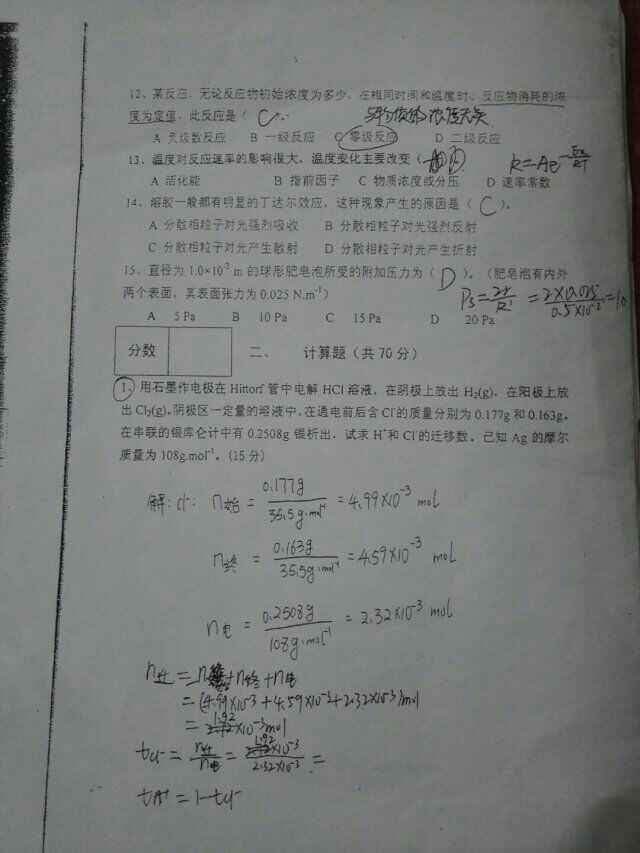 12、某反应，无论反应物初始浓度为多少，在相同时间和温度时，反应物消耗的浓
度为定值，此反应是（ C ）。 与物质的浓度无关
A 负级数反应 B 一级反应 C 零级反应 D 二级反应
13、温度对反应速率的影响很大，温度变化主要改变（ D ）。 k=Ae^-Ea/RT
A 活化能 B 指前因子 C 物质浓度或分压 D 速率常数
14、溶胶一般都有明显的丁达尔效应，这种现象产生的原因是（ C ）。
A 分散相粒子对光强烈吸收 B 分散相粒子对光强烈反射
C 分散相粒子对光产生散射 D 分散相粒子对光产生折射
15、直径为 1.0×10⁻² m 的球形肥皂泡所受的附加压力为（ D ）。（肥皂泡有内外
两个表面，其表面张力为 0.025 N.m⁻¹） Ps=2γ/R'=2×0.025/0.5×10⁻²=10
A 5 Pa B 10 Pa C 15 Pa D 20 Pa
分数
二、 计算题（共 70 分）
1、用石墨作电极在 Hittorf 管中电解 HCl 溶液，在阴极上放出 H₂(g)，在阳极上放
出 Cl₂(g)。阴极区一定量的溶液中，在通电前后含 Cl⁻的质量分别为 0.177g 和 0.163g。
在串联的银库仑计中有 0.2508g 银析出，试求 H⁺和 Cl⁻的迁移数。已知 Ag 的摩尔
质量为 108g.mol⁻¹。(15 分)
解：Cl⁻： n始 = 0.177g/35.5g·mol⁻¹ = 4.99×10⁻³ mol
n终 = 0.163g/35.5g·mol⁻¹ = 4.59×10⁻³ mol
n电 = 0.2508g/108g·mol⁻¹ = 2.32×10⁻³ mol
n迁 = n +n终+n电
= (4.99×10⁻³+4.59×10⁻³+2.32×10⁻³)mol
= 1.92×10⁻³mol
tCl⁻ = n迁/n电 = 1.92×10⁻³/2.32×10⁻³ =
tH⁺ = 1-tCl⁻